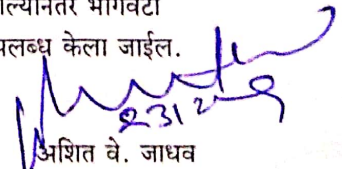 ल्यानंतर भोगवटा
पलब्ध केला जाईल.
अशित वे. जाधव